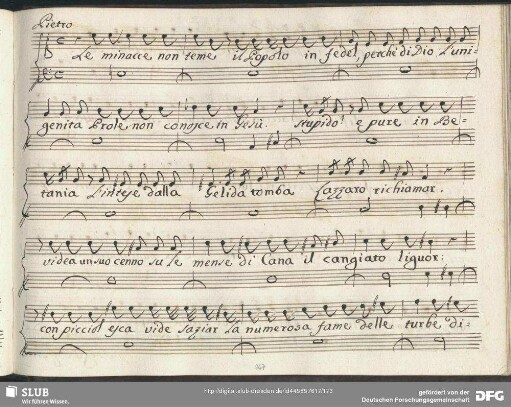 Pietro
Le minacce non teme il Popolo in fedel, perchè di Dio L'uni-
genita Prole non conosce in Gesù. stupido! e pure in Be-
tania L'intese dalla Gelida tomba Lazzaro richiamar.
videa un suo cenno su le mense di Cana il cangiato liquor:
con picciol esca vide saziar la numerosa fame delle turbe di-
167
SLUB
Wir führen Wissen.
gefördert von der
Deutschen Forschungsgemeinschaft
DFG